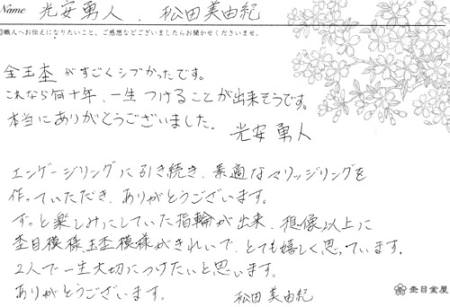 Name 光安勇人、松田美由紀
◎職人へお伝えになりたいこと、ご感想などございましたらお聞かせくださいませ。
全玉杢がすごくシブかったです。
これなら何十年、一生つけることが出来そうです。
本当にありがとうございました。
光安勇人
エンゲージリングに引き続き、素適なマリッジリングを
作っていただき、ありがとうございます。
ずっと楽しみにしていた指輪が出来、想像以上に
杢目模様玉杢模様がきれいで、とても嬉しく思っています。
2人で一生大切につけたいと思います。
ありがとうございます。
松田美由紀
杢目金屋